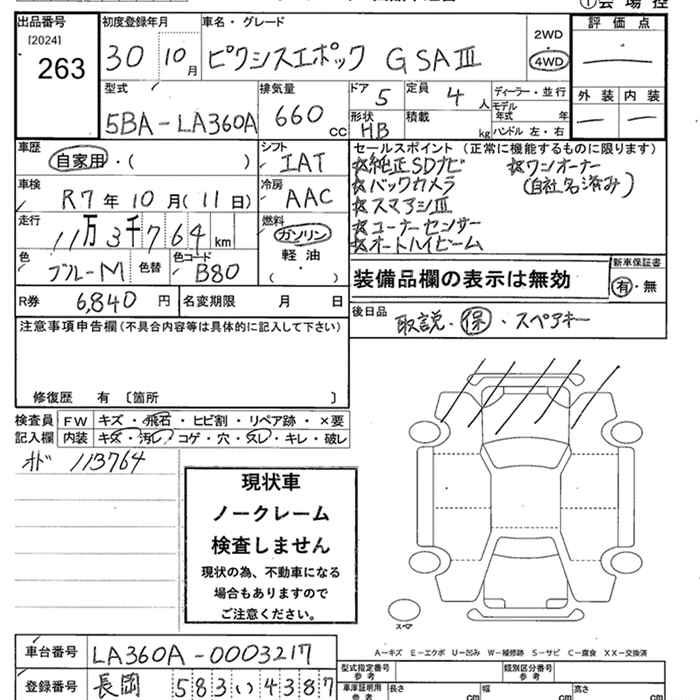 ①会場控
出品番号 [2024] 263
初度登録年月 30 10月
車名・グレード ピクシスエポック G SAⅢ
2WD 4WD
評価点 —
外装 — 内装 —
型式 5BA-LA360A
排気量 660 cc
ドア 5 定員 4 人
形状 HB 積載 kg
ディーラー・並行
モデル年式 年式
ハンドル 左・右
車歴 自家用・( )
シフト IAT
車検 R7年10月(11日)
冷房 AAC
走行 11万3千764 km
燃料 ガソリン 軽油 ( )
色 ブルーM 色替 色コード B80
R券 6,840 円 名変期限 月 日
セールスポイント(正常に機能するものに限ります)
☆純正SDナビ ☆ワンオーナー
☆バックカメラ (自社名済み)
☆スマアシⅢ
☆コーナーセンサー
☆オートハイビーム
装備品欄の表示は無効
新車保証書 有・無
後日品 取説・保・スペアキー
注意事項申告欄(不具合内容等は具体的に記入して下さい)
修復歴 有 〔箇所 〕
検査員記入欄 FW キズ・飛石・ヒビ割・リペア跡・×要
内装 キズ・汚レ・コゲ・穴・スレ・キレ・破レ
オド 113764
現状車
ノークレーム
検査しません
現状の為、不動車になる
場合もありますので
ご注意ください。
スペア
A−キズ E−エクボ U−凹み W−補修跡 S−サビ C−腐食 XX−交換済
車台番号 LA360A-0003217
登録番号 長岡 583 い 4387
型式指定番号 参考 類別区分番号 参考
車庫証明用 参考 長さ cm 幅 cm 高さ cm